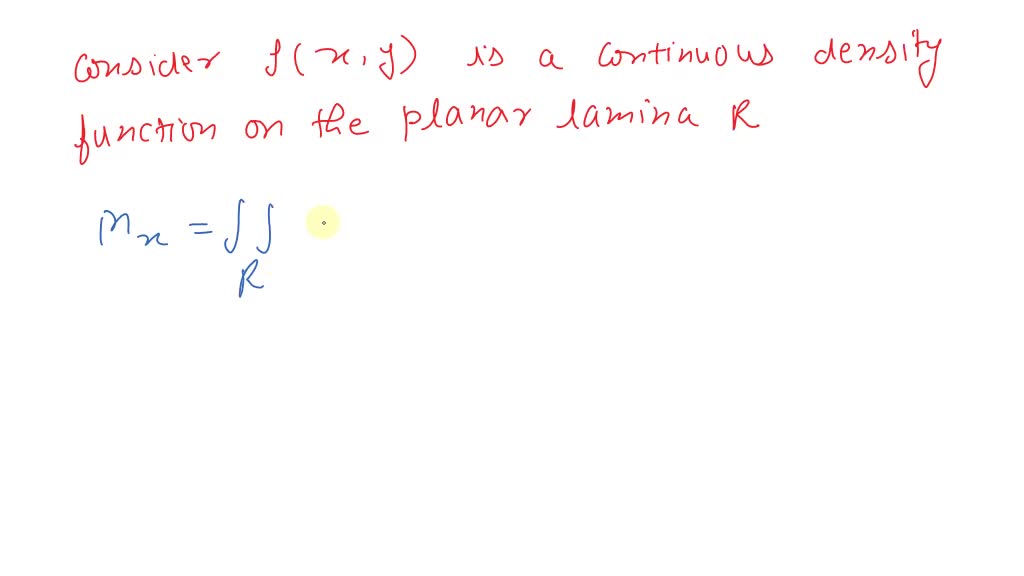 consider f(x,y) is a continuous density
function on the planar lamina R
Mx = ∫∫
R